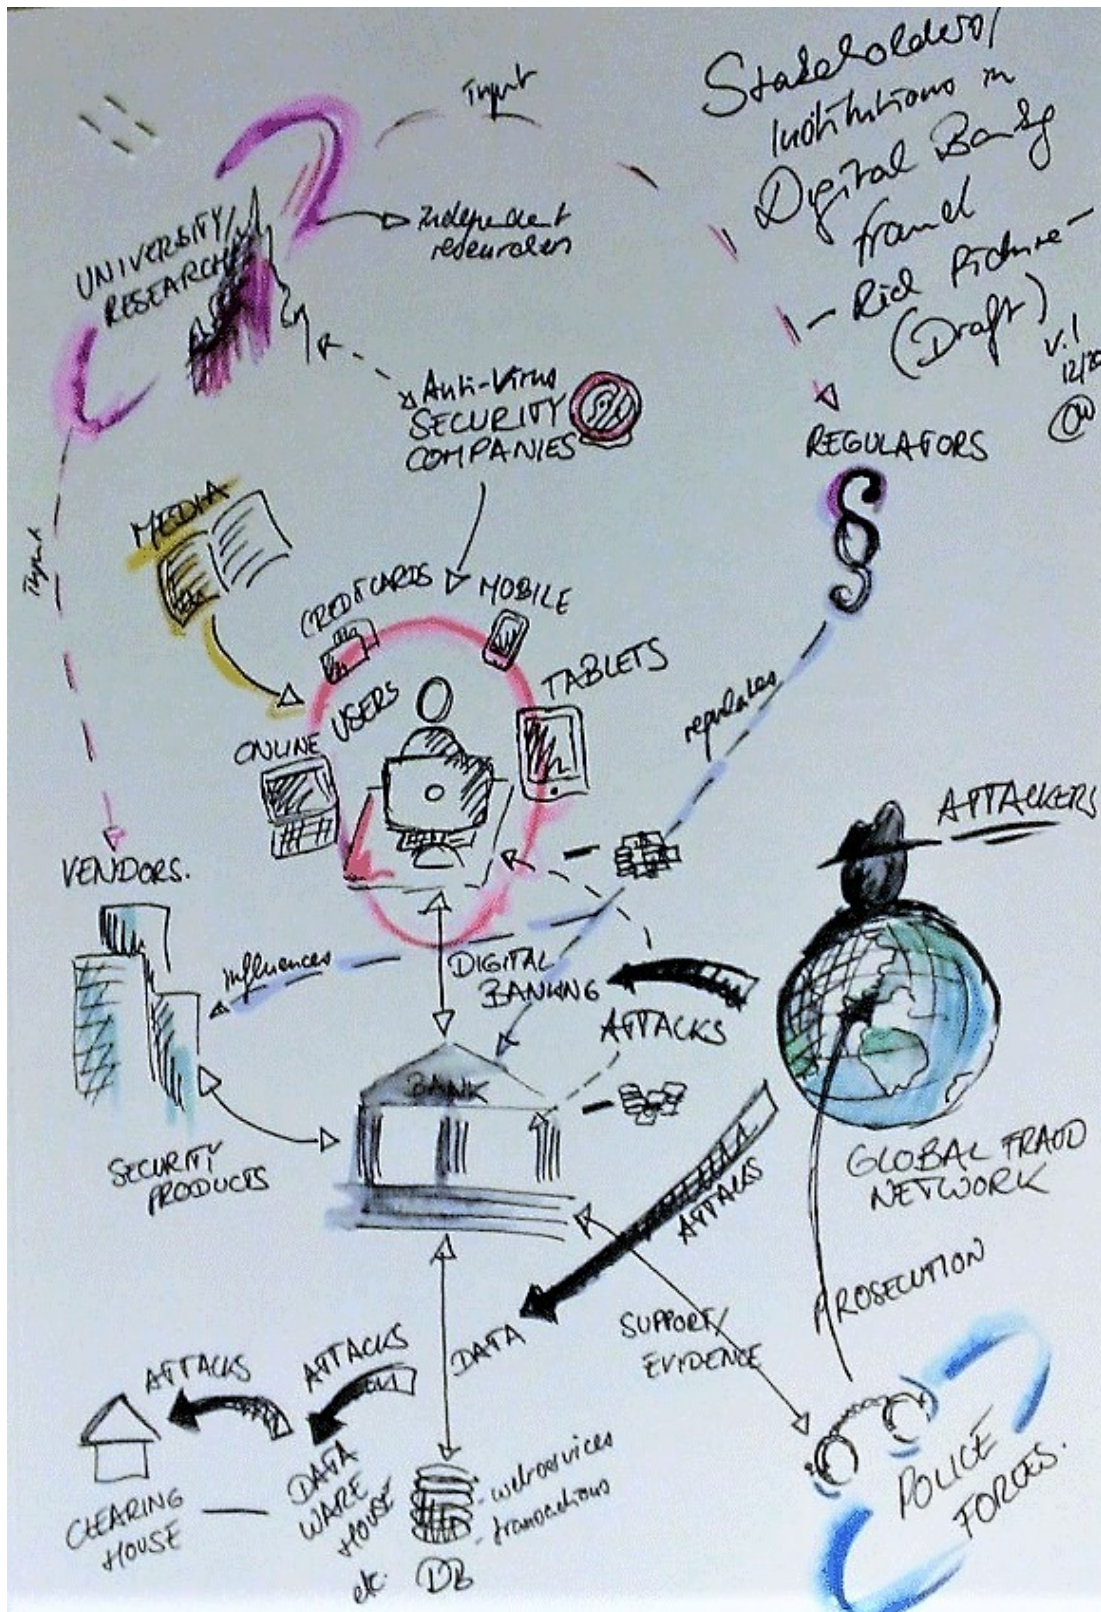 Stakeholders/
Institutions in
Digital Banking
fraud
- Rich Picture -
(Draft)
v.1
Input
UNIVERSITY/
RESEARCH
Independent
researchers
Anti-Virus
SECURITY
COMPANIES
REGULATORS
§
MEDIA
Input
CREDITCARDS
MOBILE
TABLETS
USERS
ONLINE
regulates
ATTACKERS
VENDORS.
influences
DIGITAL
BANKING
ATTACKS
BANK
SECURITY
PRODUCTS
GLOBAL FRAUD
NETWORK
ATTACKS
PROSECUTION
SUPPORT/
EVIDENCE
DATA
ATTACKS
ATTACKS
CLEARING
HOUSE
DATA
WARE
HOUSE
etc.
DB
- webservices
- transactions
POLICE
FORCES.